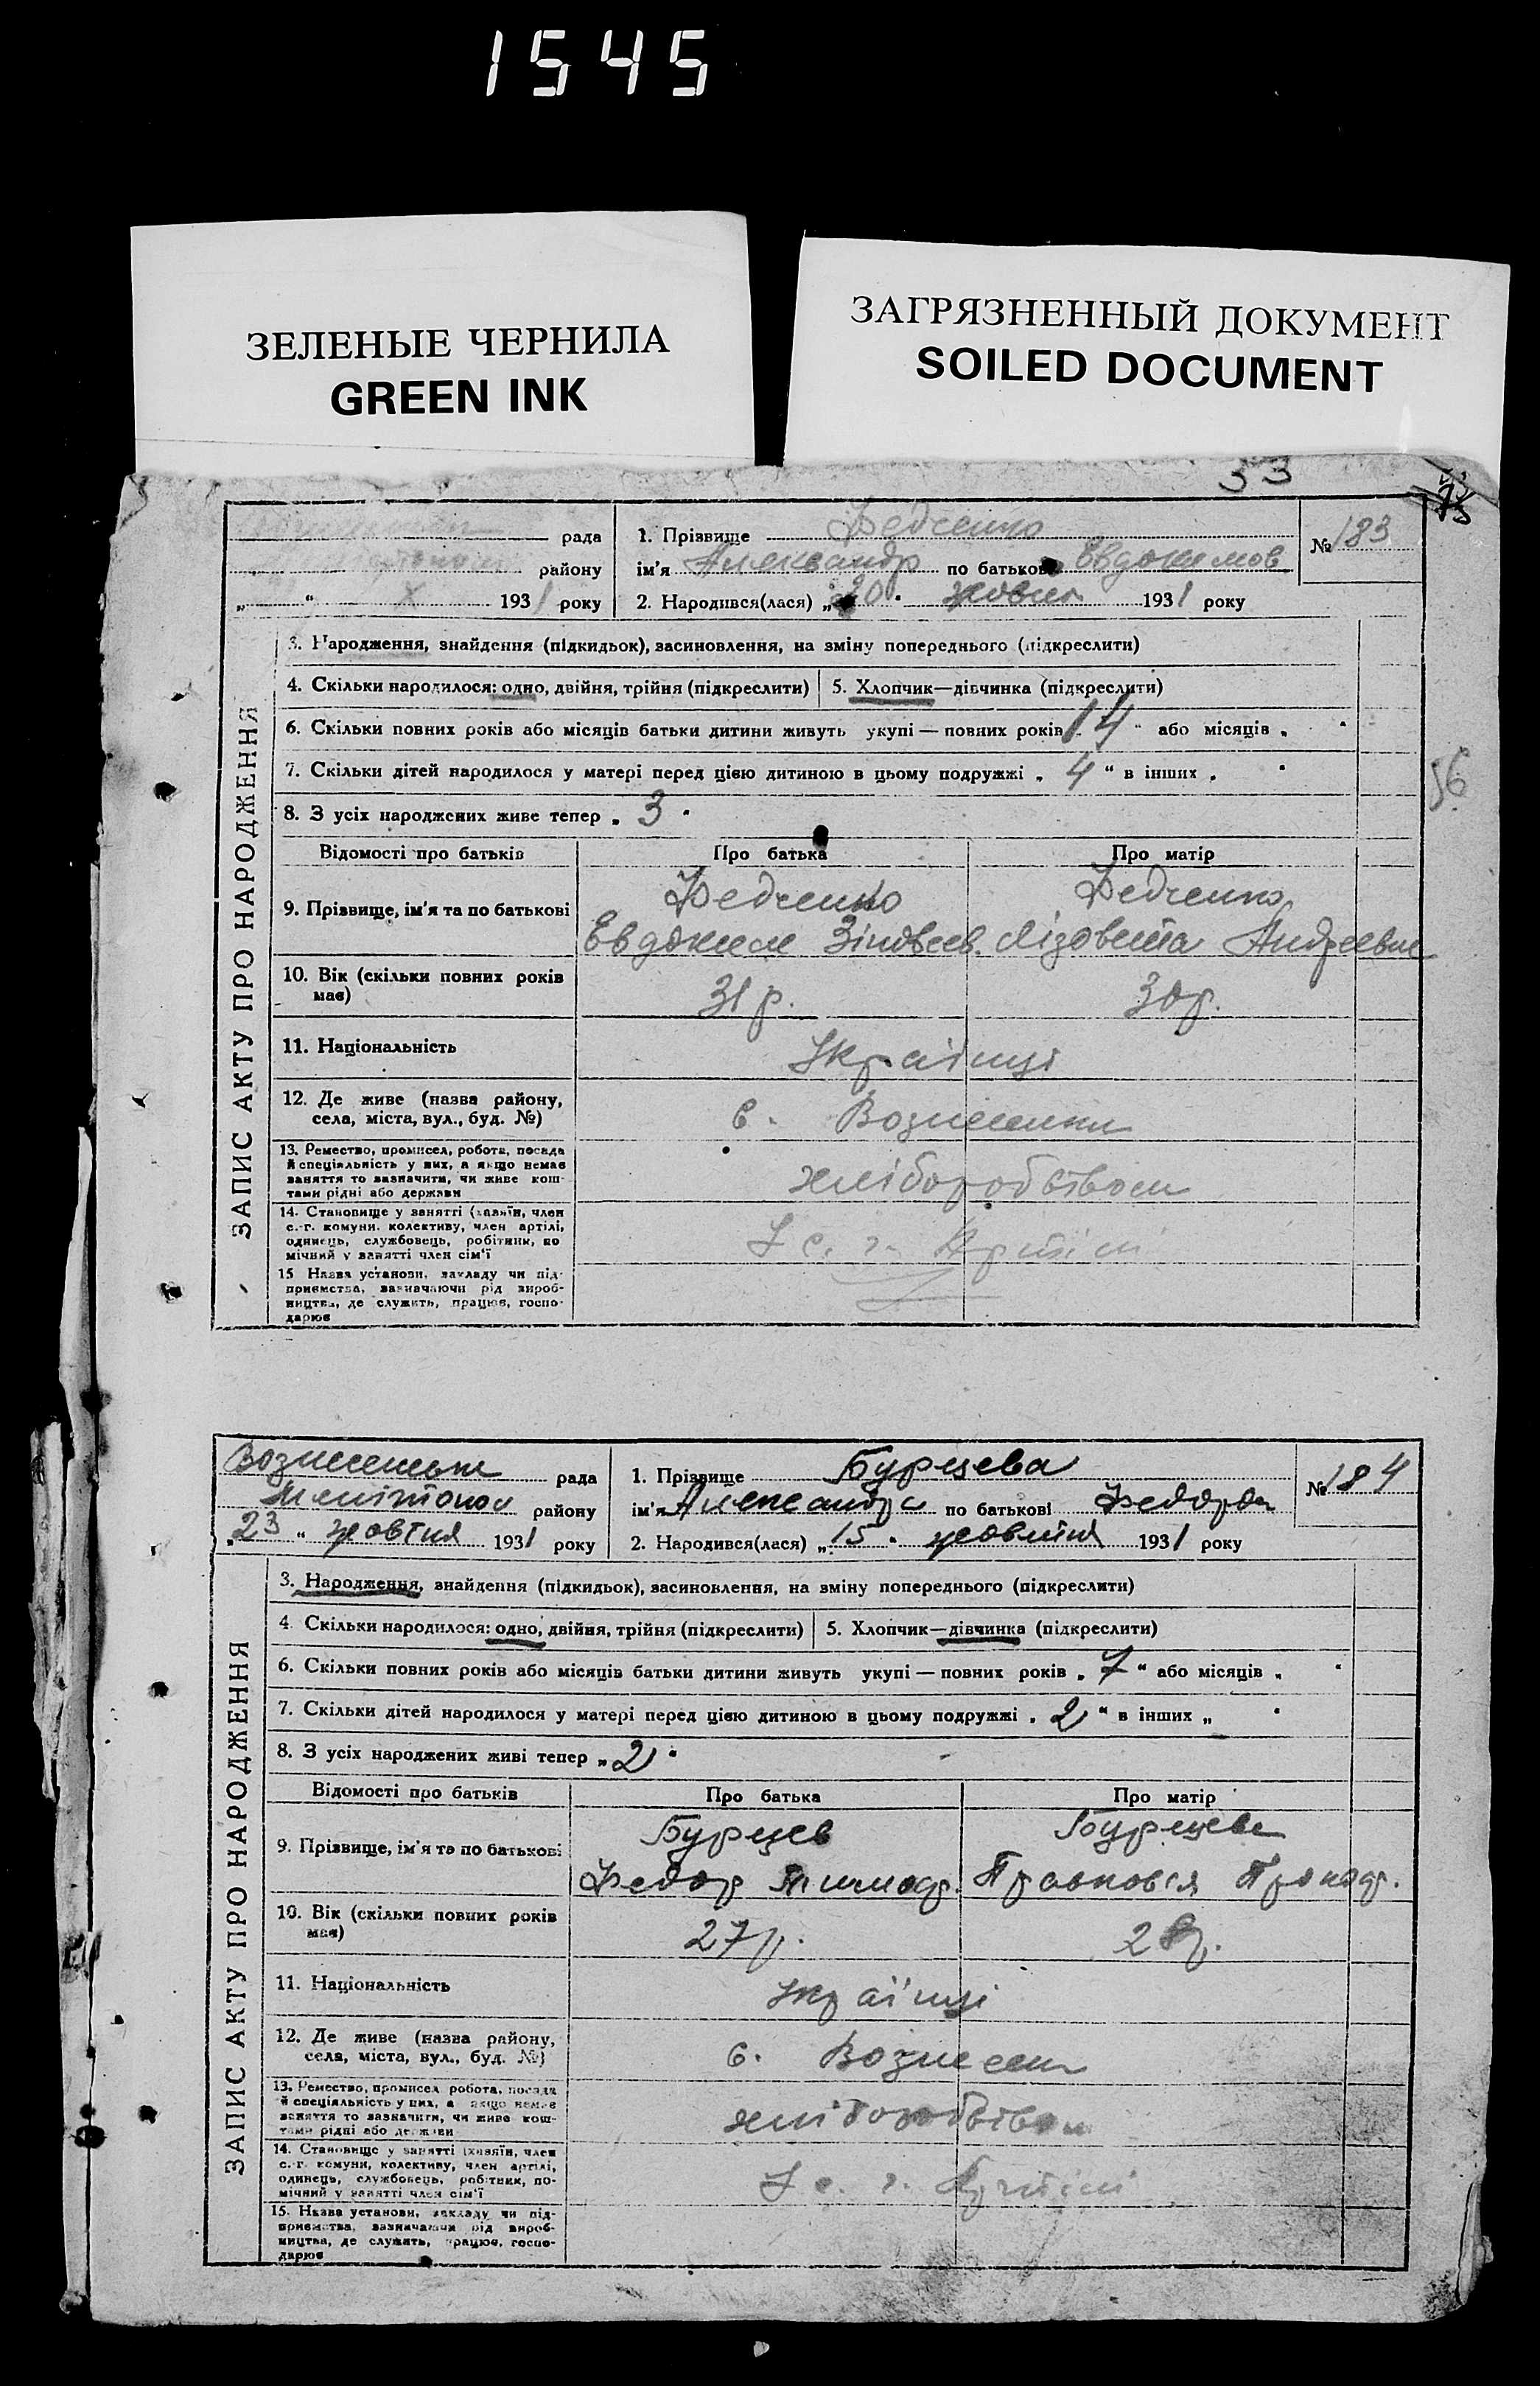 1545
ЗЕЛЕНЫЕ ЧЕРНИЛА
GREEN INK
ЗАГРЯЗНЕННЫЙ ДОКУМЕНТ
SOILED DOCUMENT
33
56
ЗАПИС АКТУ ПРО НАРОДЖЕННЯ
рада
району
X 1931 року
1. Прізвище Федченко
ім'я Александр по батькові Евдокимов
№ 183
2. Народився(лася) „20" жовтн 1931 року
3. Народження, знайдення (підкидьок), засиновлення, на зміну попереднього (підкреслити)
4. Скільки народилося: одно, двійня, трійня (підкреслити) 5. Хлопчик—дівчинка (підкреслити)
6. Скільки повних років або місяців батьки дитини живуть укупі — повних років „14" або місяців „ "
7. Скільки дітей народилося у матері перед цією дитиною в цьому подружжі „4" в інших „ "
8. З усіх народжених живе тепер „3"
Відомості про батьків Про батька Про матір
9. Прізвище, ім'я та по батькові
Федченко Федченко
Евдоким Зіновеев. Лізовета Андреевне
10. Вік (скільки повних років має) 31 р. 30 р.
11. Національність Українці
12. Де живе (назва району, села, міста, вул., буд. №) с. Вознесенки
13. Ремество, промисел, робота, посада й спеціяльність у них, а якщо немає заняття то зазначити, чи живе коштами рідні або держави
хліборобством
14. Становище у занятті (хазяїн, член с.-г. комуни, колективу, член артілі, одинець, службовець, робітник, помічний у занятті член сім'ї
У с. г. Артілі
15 Назва установи, закладу чи підприємства, зазначаючи рід виробництва, де служить, працює, господарює
ЗАПИС АКТУ ПРО НАРОДЖЕННЯ
Вознесенськ рада
Мелітопол району
„23" жовтня 1931 року
1. Прізвище Бурцева
ім'я Александра по батькові Федоров
№ 184
2. Народився(лася) „15" жовтня 1931 року
3. Народження, знайдення (підкидьок), засиновлення, на зміну попереднього (підкреслити)
4 Скільки народилося: одно, двійня, трійня (підкреслити) 5. Хлопчик—дівчинка (підкреслити)
6. Скільки повних років або місяців батьки дитини живуть укупі — повних років „7" або місяців „ "
7. Скільки дітей народилося у матері перед цією дитиною в цьому подружжі „2" в інших „ "
8. З усіх народжених живі тепер „2"
Відомості про батьків Про батька Про матір
9. Прізвище, ім'я та по батькові
Бурцев Бурцева
Федор Прасковія
10. Вік (скільки повних років має) 27 р. 28 р.
11. Національність Українці
12. Де живе (назва району, села, міста, вул., буд. №) с. Вознесен
13. Ремество, промисел робота, посада й спеціяльність у них, а якщо немає заняття то зазначити, чи живе коштами рідні або держави
хліборобством
14. Становище у занятті (хазяїн, член с.-г. комуни, колективу, член артілі, одинець, службовець, робітник, помічний у занятті член сім'ї
У с. г. Артілі
15. Назва установи, закладу чи підприємства, зазначаючи рід виробництва, де служить, працює, господарює